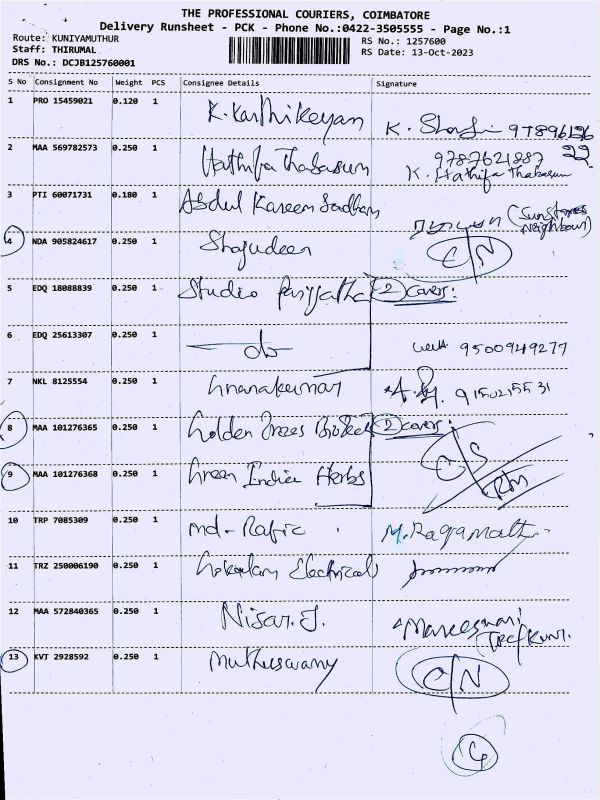 THE PROFESSIONAL COURIERS, COIMBATORE
Delivery Runsheet - PCK - Phone No.:0422-3505555 - Page No.:1
Route: KUNIYAMUTHUR
Staff: THIRUMAL
DRS No.: DCJB125760001
RS No.: 1257600
RS Date: 13-Oct-2023
S No Consignment No Weight PCS Consignee Details Signature
1 PRO 15459021 0.120 1 K. Karthikeyan K.
2 MAA 569782573 0.250 1 Hathifa Thabasum 9787621887
K. Hathifa Thabasum
3 PTI 60071731 0.180 1 Abdul Kareem Saddham (Sun
Neighbour)
4 NDA 905824617 0.250 1 Shajudeen C/N
5 EDQ 18088839 0.250 1 Studio (2) covers:
6 EDQ 25613307 0.250 1 do 9500949277
7 NKL 8125554 0.250 1 Gnanakumar 9150215531
8 MAA 101276365 0.250 1 Golden Trees (2) covers:
9 MAA 101276368 0.250 1 Green India Herbs
10 TRP 7085309 0.250 1 Md. Rafic M.
11 TRZ 250006190 0.250 1 Electricals
12 MAA 572840365 0.250 1 Nisar. J.
13 KVT 2928592 0.250 1 Muthuswamy C/N